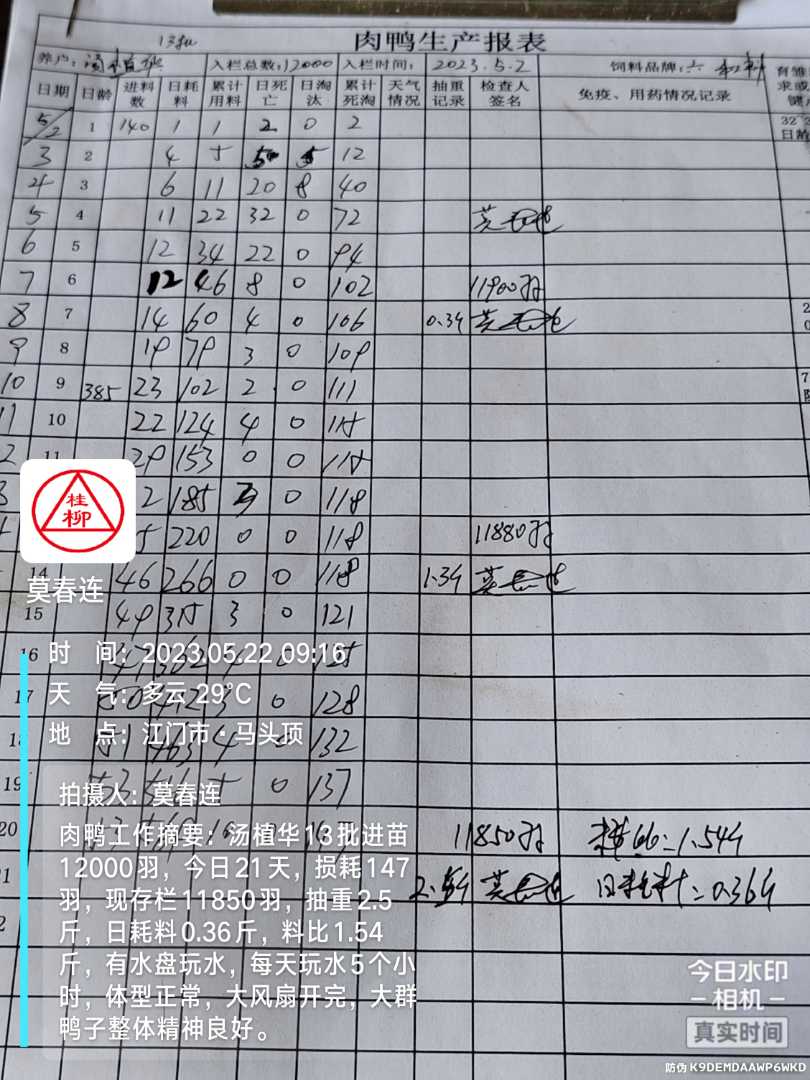 13批
肉鸭生产报表
养户: 汤植华 入栏总数:12000 入栏时间: 2023.5.2 饲料品牌:
日期 日龄 进料数 日耗料 累计用料 日死亡 日淘汰 累计死淘 天气情况 抽重记录 检查人签名 免疫、用药情况记录
5/2 1 140 1 1 2 0 2
3 2 4 5 5 12
4 3 6 11 20 8 40
5 4 11 22 32 0 72
6 5 12 34 22 0 94
7 6 12 46 8 0 102 11900羽
8 7 14 60 4 0 106 0.3斤
9 8 19 79 3 0 109
10 9 385 23 102 2 0 111
11 10 22 124 4 0 115
11 29 153 0 0 115
2 185 3 0 118
5 220 0 0 118 11880羽
14 46 266 0 0 118 1.3斤
15 49 315 3 0 121
16 125
17 3 0 128
18 4 132
19 5 0 137
20 11850羽 料比=1.54斤
日耗料=0.36斤
桂柳
莫春连
时 间: 2023.05.22 09:16
天 气: 多云 29℃
地 点: 江门市·马头顶
拍摄人: 莫春连
肉鸭工作摘要: 汤植华13批进苗
12000羽，今日21天，损耗147
羽，现存栏11850羽，抽重2.5
斤，日耗料0.36斤，料比1.54
斤，有水盘玩水，每天玩水5个小
时，体型正常，大风扇开完，大群
鸭子整体精神良好。
今日水印
相机
真实时间
防伪 K9DEMDAAWP6WKD